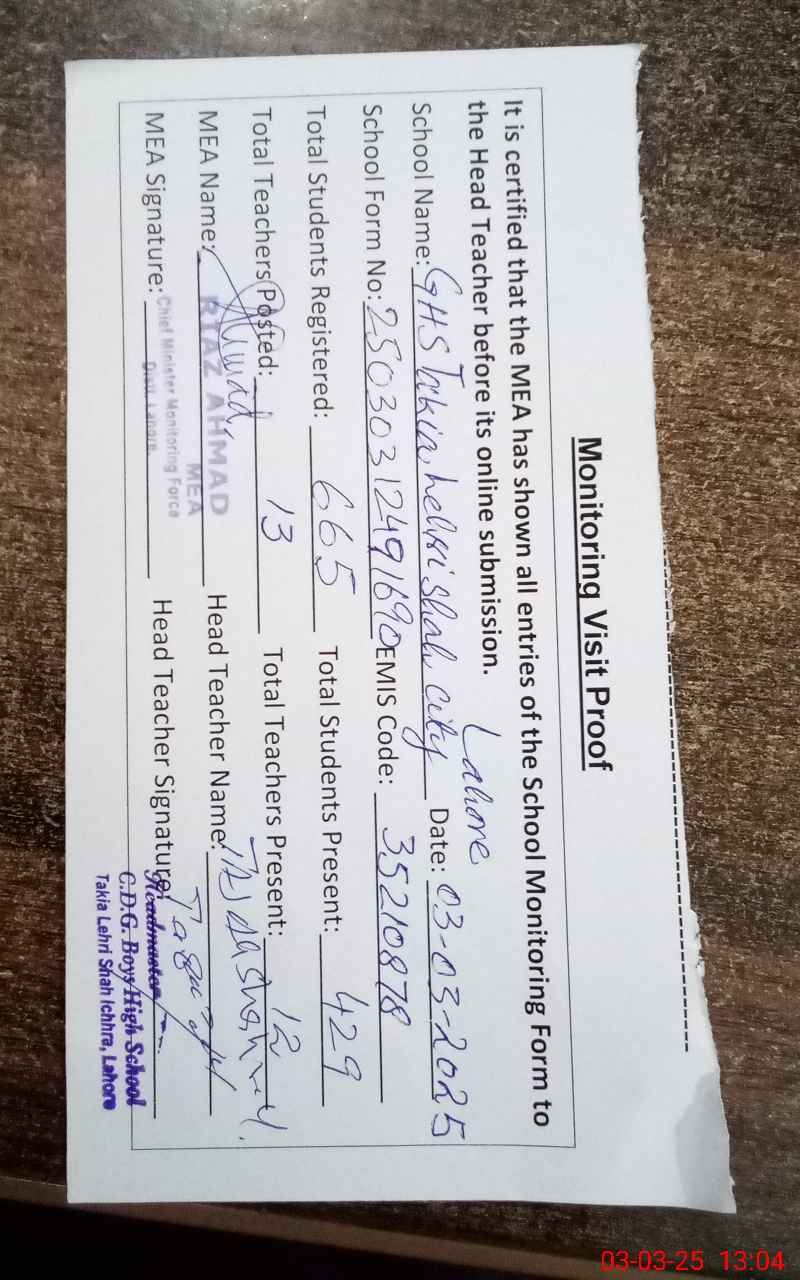 Monitoring Visit Proof
It is certified that the MEA has shown all entries of the School Monitoring Form to
the Head Teacher before its online submission.
Lahore
School Name: GHS Takia Lehri Shah City Date: 03-03-2025
School Form No: 25030312491690 EMIS Code: 35210878
Total Students Registered: 665 Total Students Present: 429
Total Teachers Posted: 13 Total Teachers Present: 12
MEA Name: RIAZ AHMAD Head Teacher Name:
MEA
Chief Minister Monitoring Force
Distt. Lahore.
MEA Signature: Head Teacher Signature:
Headmaster
C.D.G. Boys High School
Takia Lehri Shah Ichhra, Lahore
03-03-25 13:04